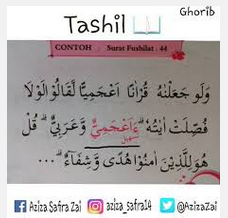 Ghorib
Tashil
CONTOH : Surat Fushilat : 44
وَلَوْ جَعَلْنٰهُ قُرْاٰنًا اَعْجَمِيًّا لَّقَالُوْا لَوْلَا
فُصِّلَتْ اٰيٰتُهٗ ۗ ءَاَعْجَمِيٌّ وَّعَرَبِيٌّ ۗ قُلْ
هُوَ لِلَّذِيْنَ اٰمَنُوْا هُدًى وَّشِفَاۤءٌ ۗ ...
تسهيل
Aziza Safra Zai aziza_safra14 @AzizaZai